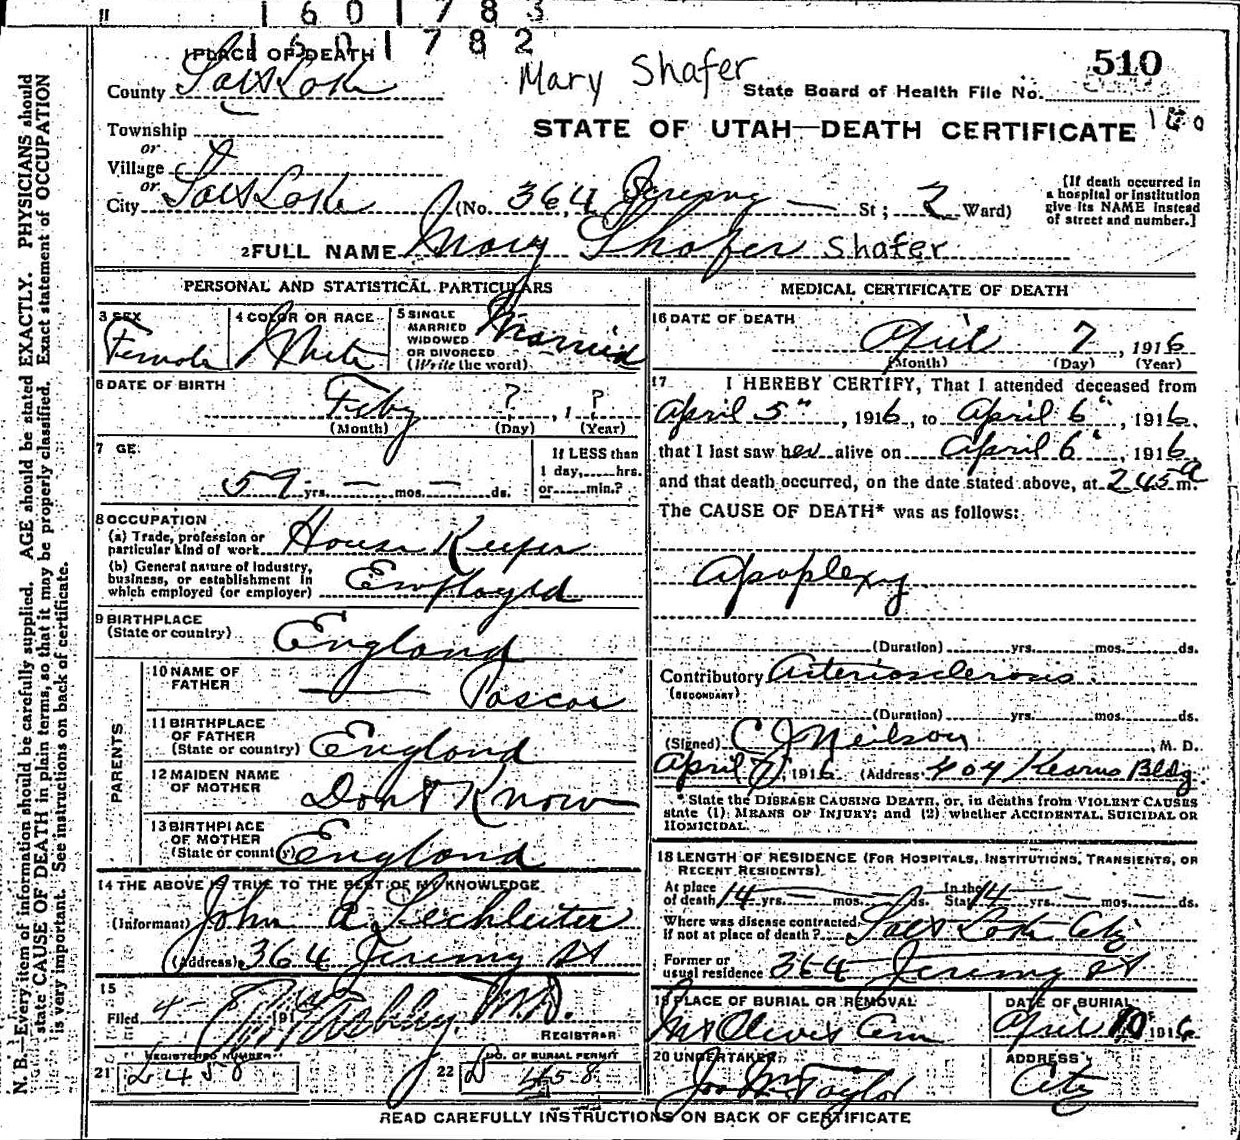 1 6 0 1 7 8 3
1 6 0 1 7 8 2
Mary Shafer
510
1 PLACE OF DEATH
County Salt Lake
State Board of Health File No.
Township
or
STATE OF UTAH—DEATH CERTIFICATE
Village
or
City Salt Lake (No. 364 Jeremy — St; 2 Ward)
[If death occurred in
a hospital or institution
give its NAME instead
of street and number.]
2 FULL NAME Mary Shafer Shafer
PERSONAL AND STATISTICAL PARTICULARS
3 SEX
Female
4 COLOR OR RACE
White
5 SINGLE
MARRIED
WIDOWED
OR DIVORCED
(Write the word)
Married
6 DATE OF BIRTH
Feby ? , 1 ?
(Month) (Day) (Year)
7 GE
59 yrs. — mos. — ds.
If LESS than
1 day, hrs.
or min.?
8 OCCUPATION
(a) Trade, profession or
particular kind of work House Keeper
(b) General nature of industry,
business, or establishment in
which employed (or employer) Employed
9 BIRTHPLACE
(State or country) England
PARENTS
10 NAME OF
FATHER — Pascoe
11 BIRTHPLACE
OF FATHER
(State or country) England
12 MAIDEN NAME
OF MOTHER Dont Know
13 BIRTHPLACE
OF MOTHER
(State or country) England
14 THE ABOVE IS TRUE TO THE BEST OF MY KNOWLEDGE
(Informant) John A Lechleiter
(Address) 364 Jeremy St
15
Filed 4- 191 M.D.
REGISTRAR
21 REGISTERED NUMBER
D 458
22 NO. OF BURIAL PERMIT
D 458
MEDICAL CERTIFICATE OF DEATH
16 DATE OF DEATH
April 7 , 1916
(Month) (Day) (Year)
17 I HEREBY CERTIFY, That I attended deceased from
April 5" , 1916, to April 6" , 1916,
that I last saw her alive on April 6" , 1916,
and that death occurred, on the date stated above, at 2 45 a m.
The CAUSE OF DEATH* was as follows:
Apoplexy
(Duration) yrs. mos. ds.
Contributory Arteriosclerosis
(SECONDARY)
(Duration) yrs. mos. ds.
(Signed) C J Neilson , M. D.
April 7, 1916 (Address 404 Kearns Bldg
*State the DISEASE CAUSING DEATH, or, in deaths from VIOLENT CAUSES
state (1) MEANS OF INJURY; and (2) whether ACCIDENTAL, SUICIDAL OR
HOMICIDAL.
18 LENGTH OF RESIDENCE (FOR HOSPITALS, INSTITUTIONS, TRANSIENTS, OR
RECENT RESIDENTS).
At place
of death 14 yrs. — mos. ds. In the
State 14 yrs. — mos. — ds.
Where was disease contracted,
If not at place of death? Salt Lake City
Former or
usual residence 364 Jeremy St
19 PLACE OF BURIAL OR REMOVAL
Mt Olivet Cem
DATE OF BURIAL
April 10 1916
20 UNDERTAKER
Jos Wm Taylor
ADDRESS
City
READ CAREFULLY INSTRUCTIONS ON BACK OF CERTIFICATE
N. B.—Every item of information should be carefully supplied. AGE should be stated EXACTLY. PHYSICIANS should
state CAUSE OF DEATH in plain terms, so that it may be properly classified. Exact statement of OCCUPATION
is very important. See instructions on back of certificate.